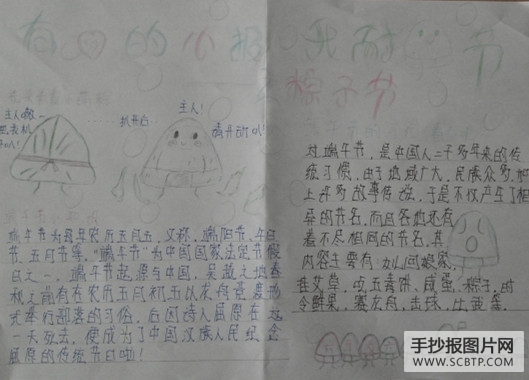 有心的小报
我耐 节
棕子节
主人
扒开后
主人!
请开动叭!
端午节为每年农历五月五,又称,端阳节、午日
节,五月节等,"端午节"为中国国家法定节假
日之一。端午节起源与中国,吴越之地春
秋之前有在农历五月初五以龙舟竞渡形
式举行部落的习俗,后因诗人屈原在这
一天死去,便成为了中国汉族人民纪念
屈原的传统节日啦!
对端午节,是中国人二千多年来的传
统习惯,由于地域广大,民族众多,加
上许多的故事传说,于是不仅产生了相
异的节名,而且各地还有
着不尽相同的节名,其
内容主要有:女儿回娘家,
挂艾草,吃五毒饼、咸蛋、粽子、时
令鲜果,赛龙舟,击球,比武,
手抄报图片网
WWW.SCBTP.COM